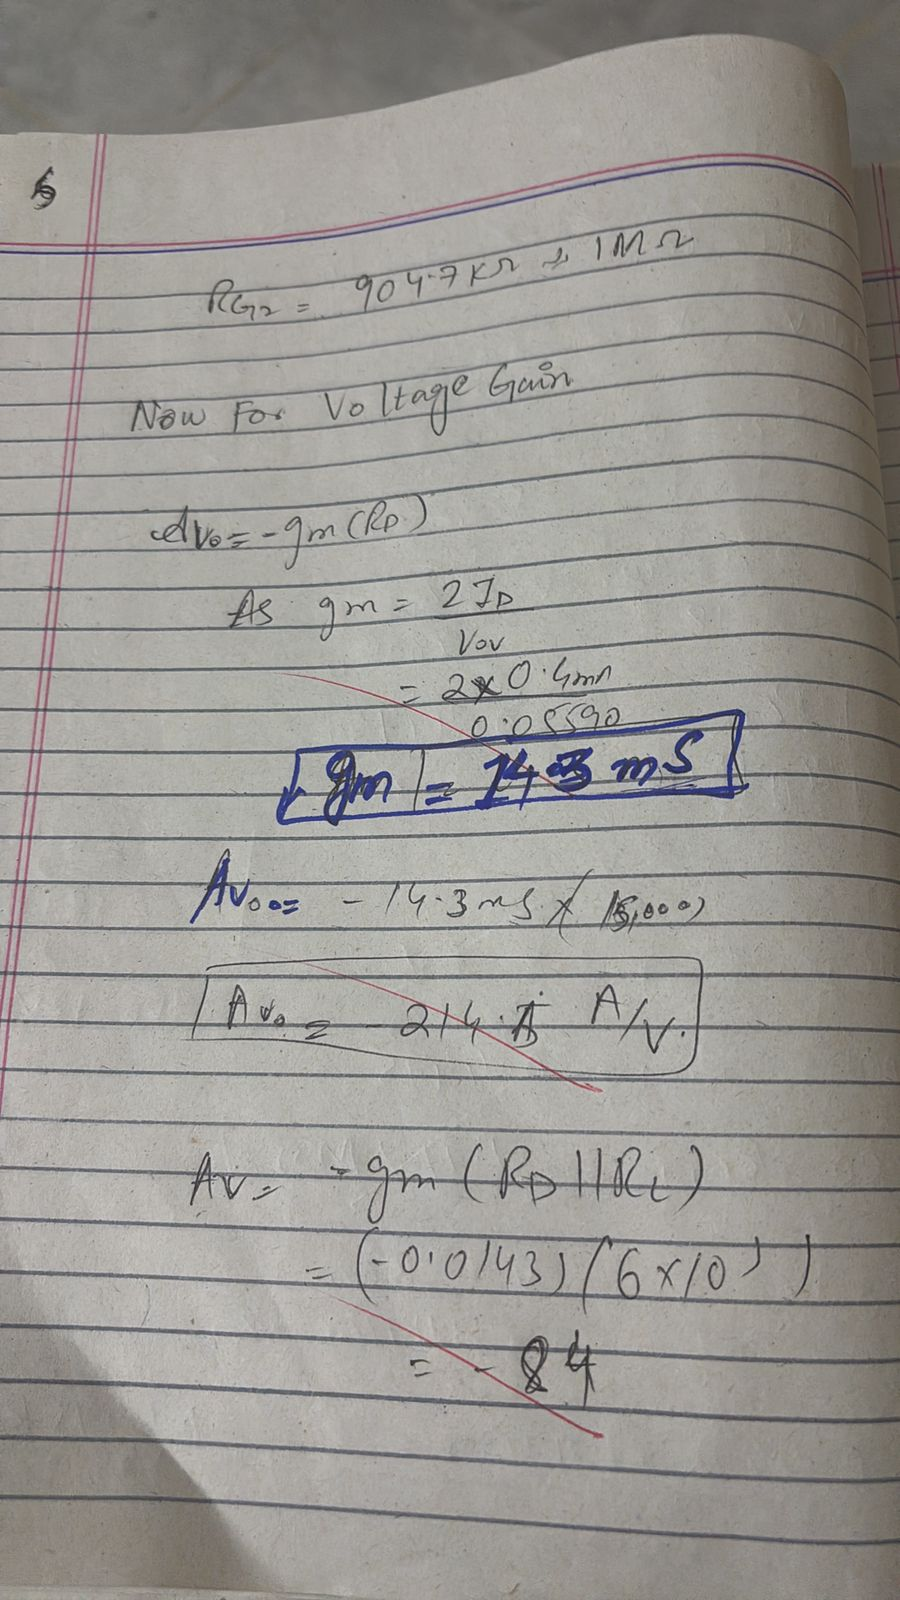 6
RG2 = 904.7KΩ ≈ 1MΩ
Now For Voltage Gain
Avo = -gm(RD)
As gm = 2ID
Vov
= 2x0.4mA
0.05590
gm = 14.3 mS
Avo = -14.3mS x (15,000)
Avo = -214.5 A/V.
Av = -gm (RD||RL)
= (-0.0143)(6x10³)
= -84